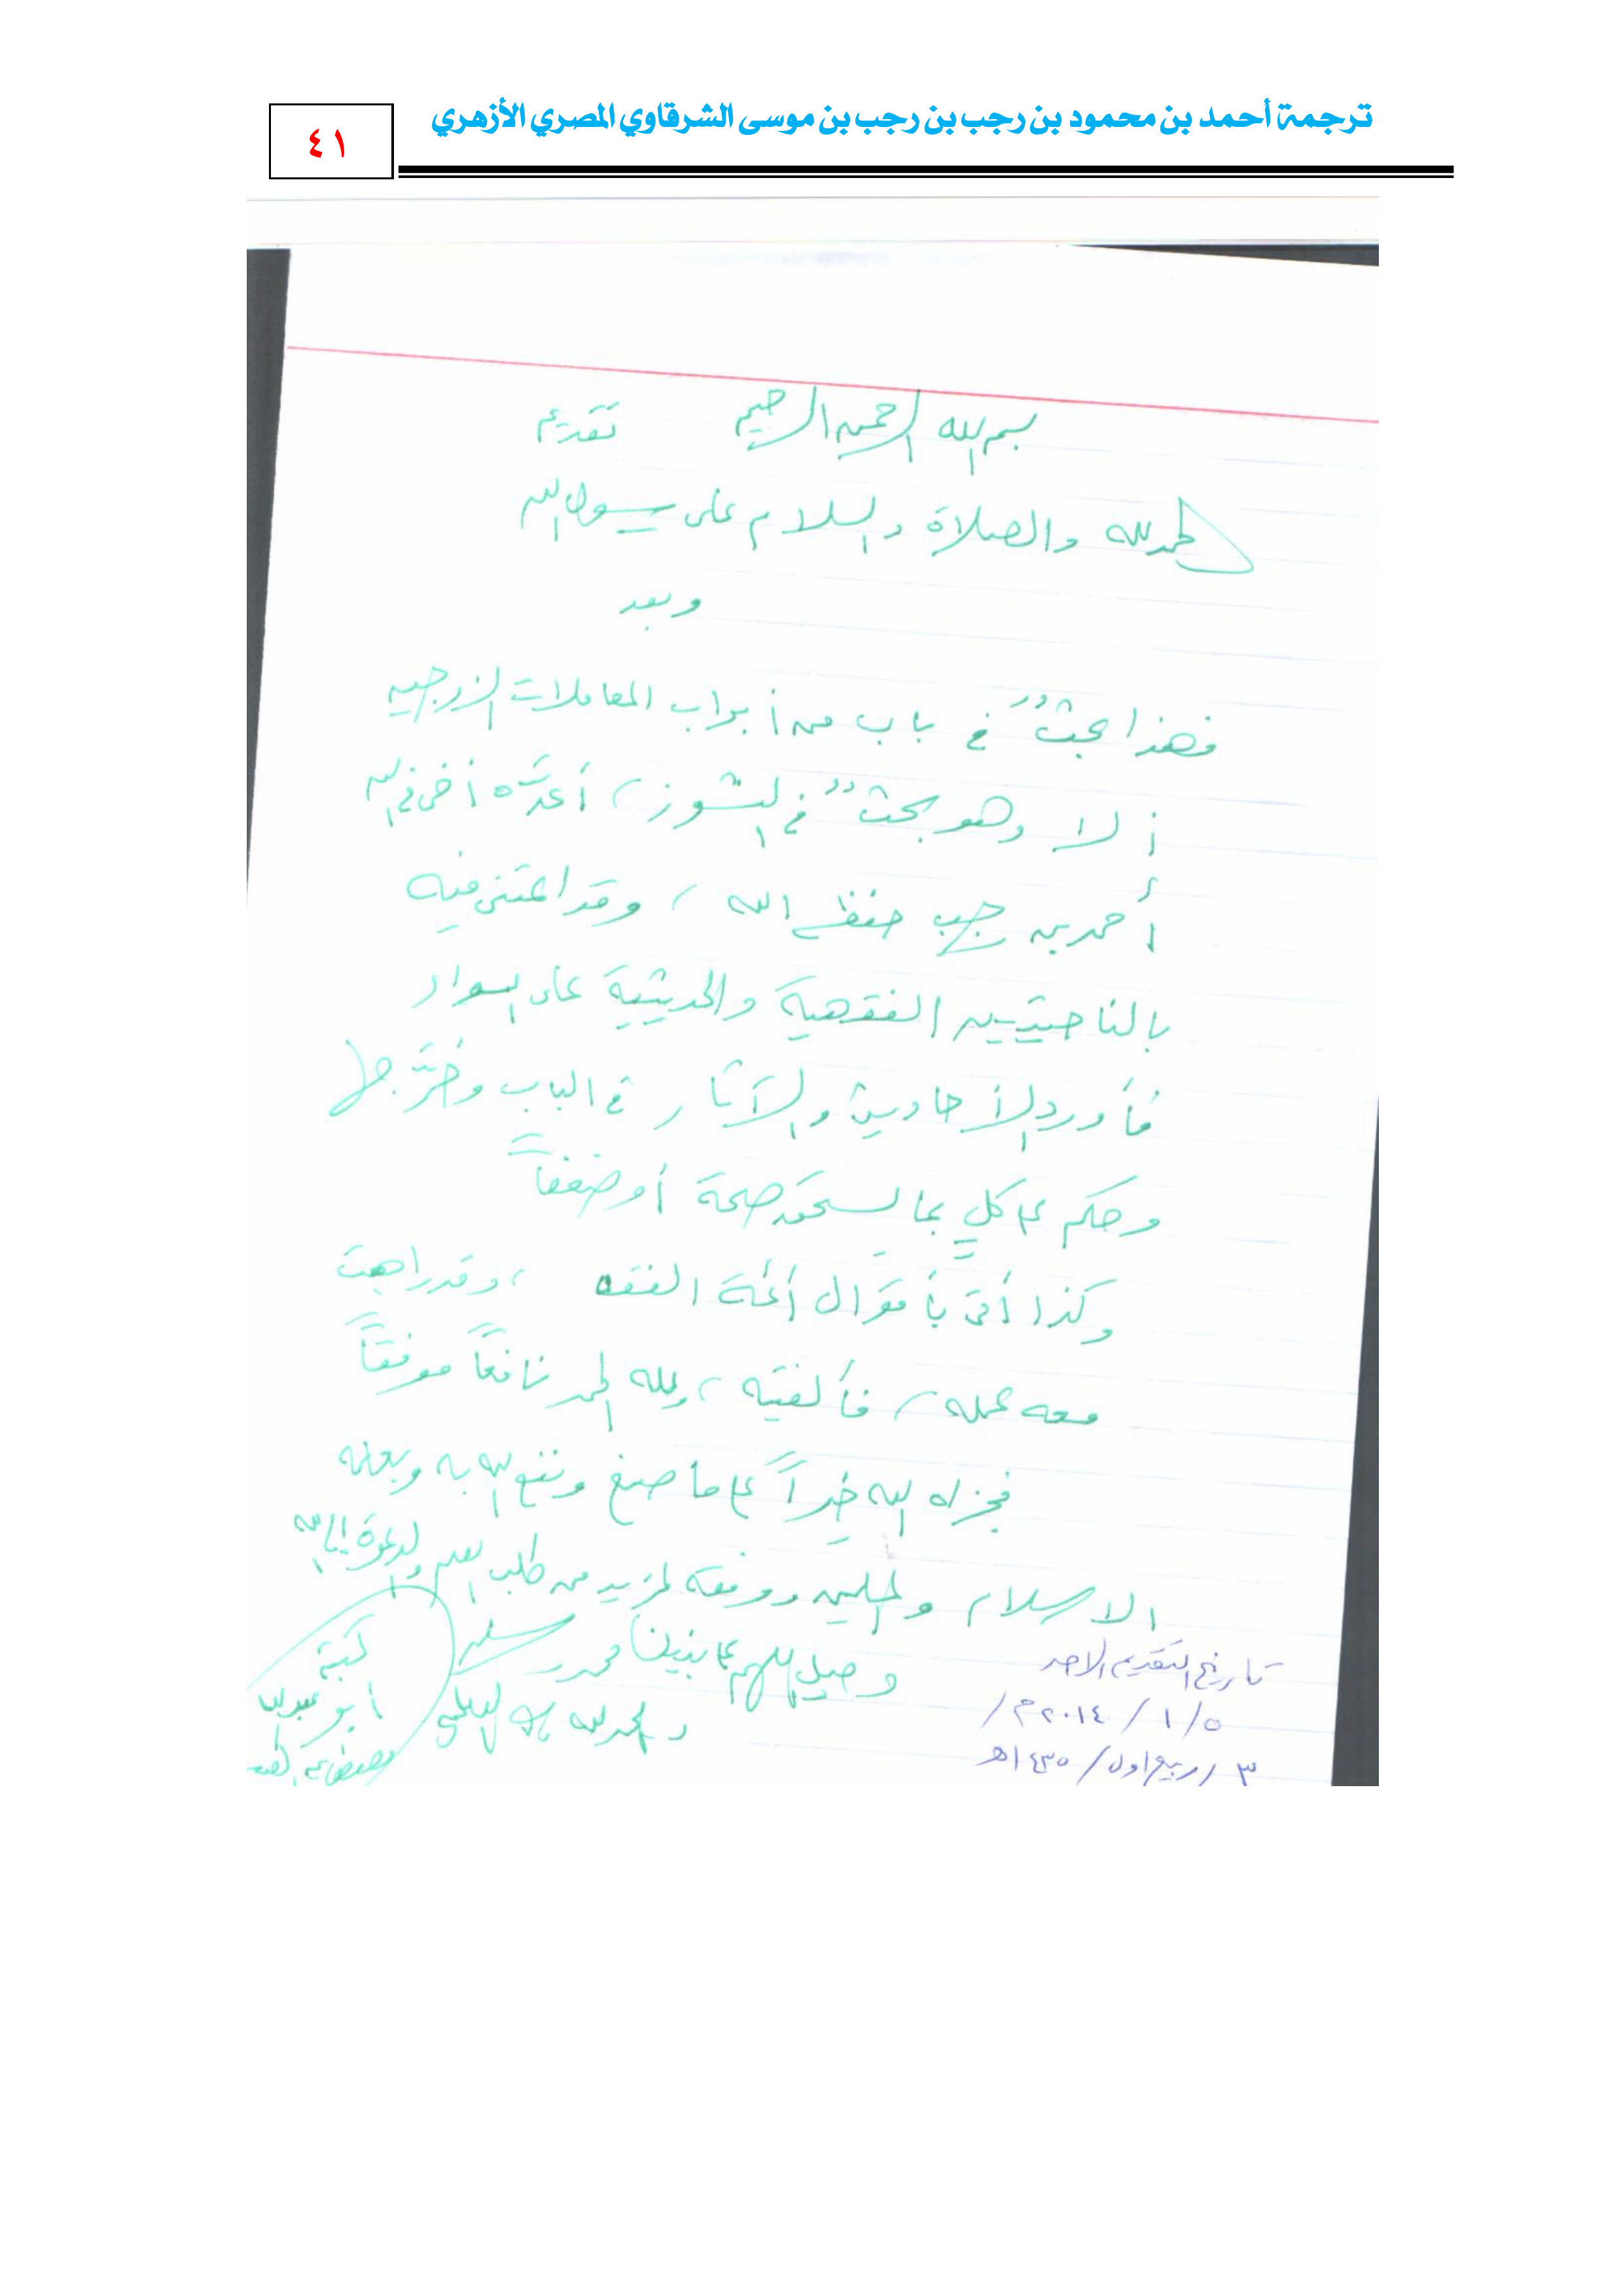 ترجمة أحمد بن محمود بن رجب بن رجب بن موسى الشرقاوي المصري الأزهري
٤١
بسم الله الرحمن الرحيم تقديم
الحمد لله والصلاة والسلام على رسول الله
وبعد
فهذا بحثٌ في باب من أبواب المعاملات الزوجية
ألا وهو بحثٌ في النشوز، أعدَّه أخي في الله
أحمد بن رجب حفظه الله، وقد اعتنى فيه
بالناحيتين الفقهية والحديثية على السواء
فأورد الأحاديث والآثار في الباب وخرَّجها
وحكم على كلٍ بما يستحق صحة أو ضعفاً
وكذا أتى بأقوال أئمة الفقه، وقد راجعت
معه عمله، فألفيته، ولله الحمد نافعاً موفقاً
فجزاه الله خيراً على ما صنع ونفع الله به وبعلمه
الإسلام والمسلمين ووفقه لمزيد من طلب العلم والدعوة إلى الله
وصل اللهم على نبينا محمد وسلم
والحمد لله رب العالمين
كتبه
أبو عبد الله
مصطفى بن العدوي
تاريخ التقديم الأحد
٥/ ١/ ٢٠١٤م/
٣/ربيع اول/ ١٤٣٥هـ